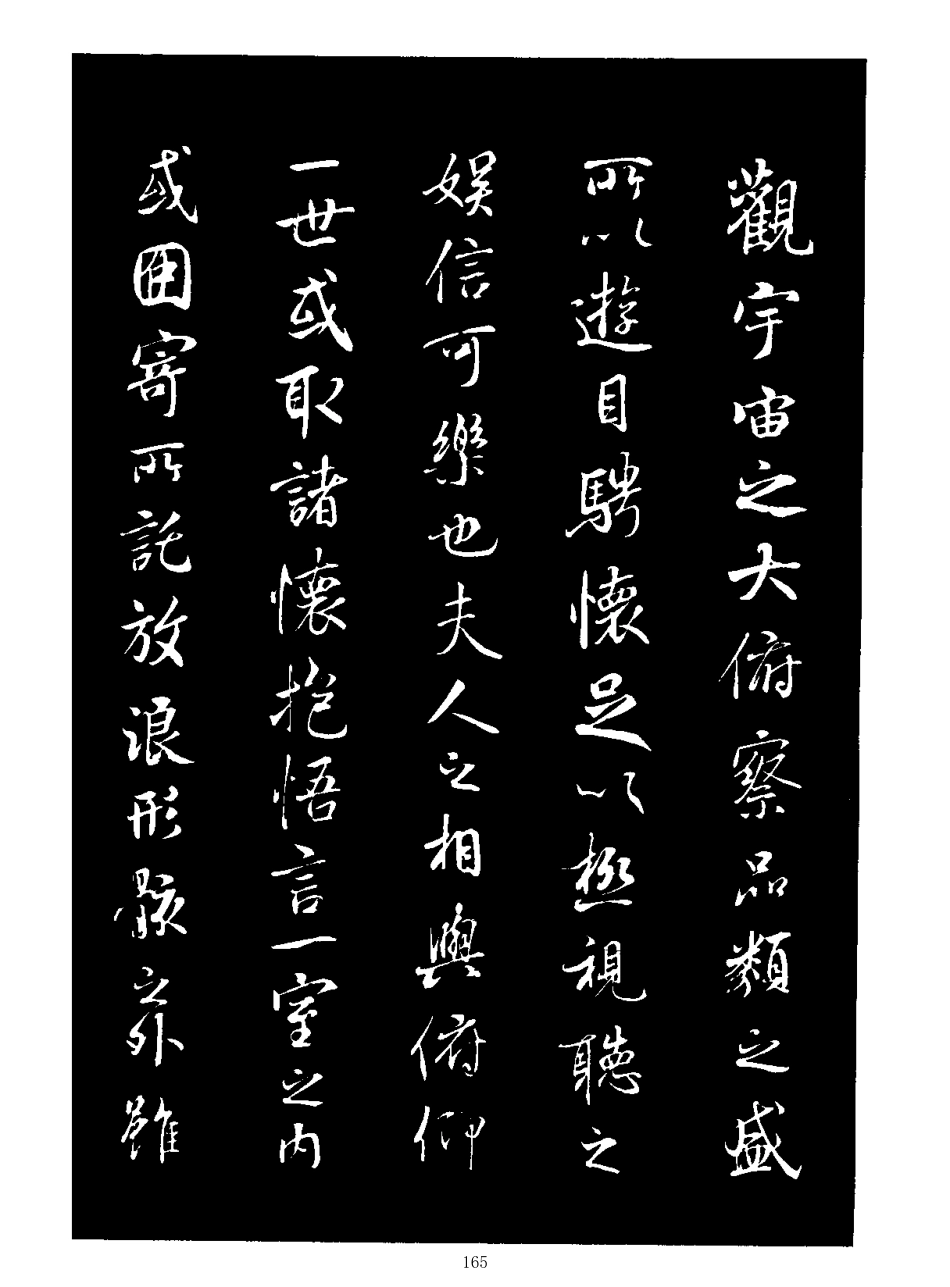 觀宇宙之大俯察品類之盛
所以遊目騁懷足以極視聽之
娛信可樂也夫人之相與俯仰
一世或取諸懷抱悟言一室之內
或因寄所託放浪形骸之外雖
165